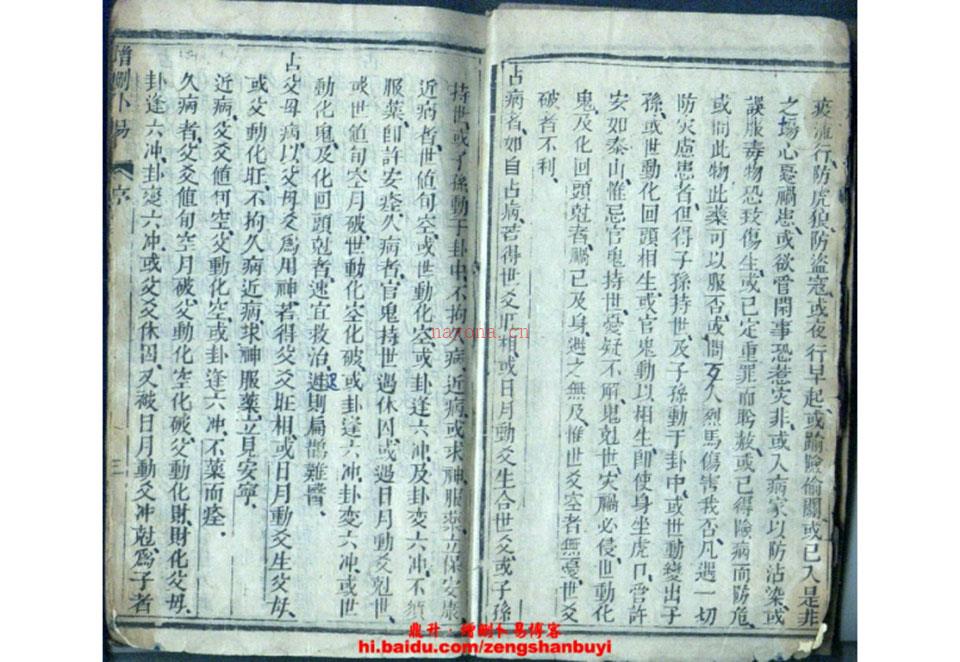 疾流行、防虎狼、防盜寇、或夜行早起、或踰險偷關、或已入是非
之塲、心憂禍患、或欲管閑事恐惹灾非、或入病家以防沾染、或
誤服毒物恐致傷生、或已定重罪而盼赦、或已得險病而防危、
或問此物此藥可以服否、或問歹人烈馬傷害我否、凡遇一切
防灾慮患者、但得子孫持世、及子孫動于卦中、或世動變出子
孫、或世動化回頭相生、或官鬼動以相生、卽使身坐虎口、管許
安如泰山、惟忌官鬼持世、憂疑不解、鬼尅世、灾禍必侵、世動化
鬼、及化回頭尅者、禍已及身、避之無及、惟世爻空者無憂、世爻
破者不利、
占病者、如自占病、若得世爻旺相、或日月動爻生合世爻、或子孫
持世、或子孫動于卦中、不拘久病、近病、或求神、服藥、立保安康
近病者、世値旬空、或世動化空、或卦逢六冲、及卦變六冲、不須
服藥、卽許安痊、久病者、官鬼持世、遇休囚、或遇日月動爻尅世、
或世値旬空月破、世動化空化破、或卦逢六冲、卦變六冲、或世
動化鬼、及化回頭尅者、速宜救治、遲則扁鵲難醫、
占父母病、以父母爻爲用神、若得父爻旺相、或日月動爻生父母、
或父動化旺、不拘久病近病、求神服藥、立見安寧、
近病、父爻値旬空、父動化空、或卦逢六冲、不藥而痊、
久病者、父爻値旬空月破、父動化空化破、父動化財、財化父母、
卦逢六冲、卦變六冲、或父爻休囚、又被日月動爻冲尅、爲子者
增刪卜易
序
三
nayona.cn
鼎升·增删卜易博客
hi.baidu.com/zengshanbuyi